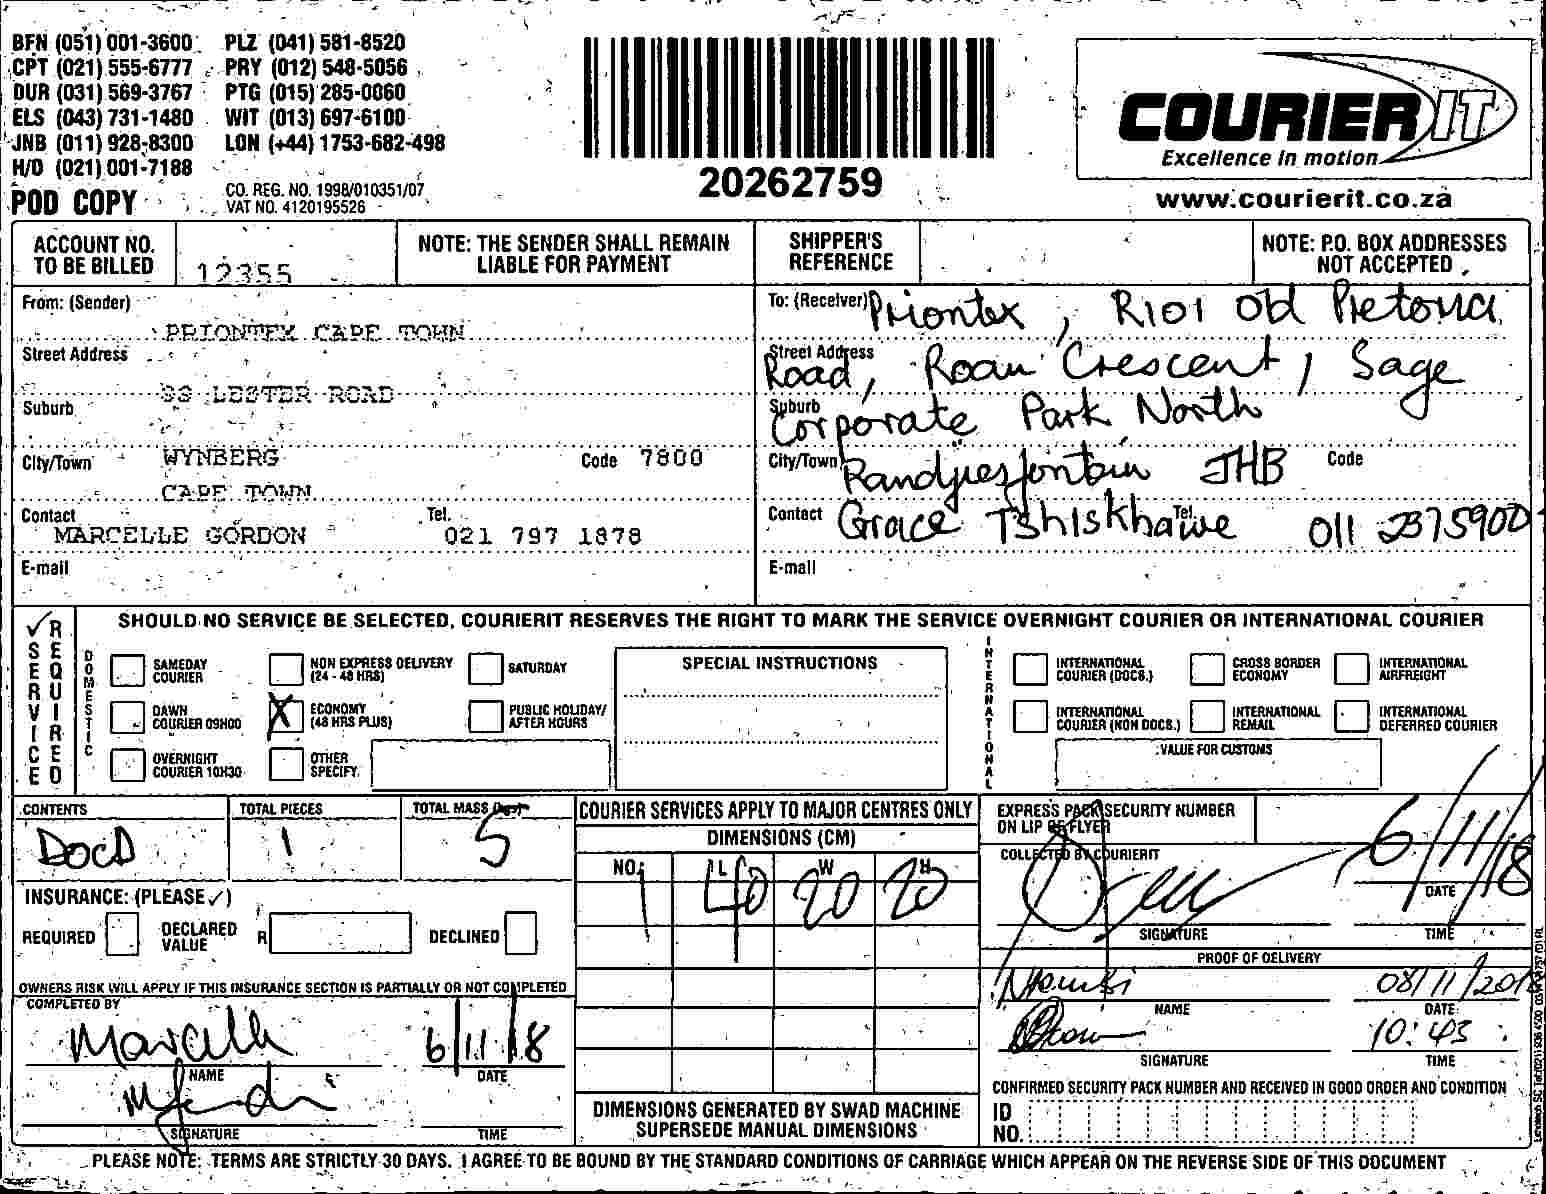 BFN (051) 001-3600 PLZ (041) 581-8520
CPT (021) 555-6777 PRY (012) 548-5056
DUR (031) 569-3767 PTG (015) 285-0060
ELS (043) 731-1480 WIT (013) 697-6100
JNB (011) 928-8300 LON (+44) 1753-682-498
H/O (021) 001-7188
POD COPY
CO. REG. NO. 1998/010351/07
VAT NO. 4120195526
20262759
COURIER IT
Excellence in motion
www.courierit.co.za
ACCOUNT NO. TO BE BILLED 12355
NOTE: THE SENDER SHALL REMAIN LIABLE FOR PAYMENT
SHIPPER'S REFERENCE
NOTE: P.O. BOX ADDRESSES NOT ACCEPTED
From: (Sender)
PRIONTEX CAPE TOWN
Street Address
LESTER ROAD
Suburb
City/Town WYNBERG Code 7800
CAPE TOWN
Contact Tel.
MARCELLE GORDON 021 797 1878
E-mail
To: (Receiver) Priontex, R101 Old Pretoria
Street Address
Road, Roan Crescent, Sage
Suburb
Corporate Park North
City/Town Randjiesfontein JHB Code
Contact Grace Tshiskhawe Tel. 011 2375900
E-mail
✓ SERVICE REQUIRED
SHOULD NO SERVICE BE SELECTED, COURIERIT RESERVES THE RIGHT TO MARK THE SERVICE OVERNIGHT COURIER OR INTERNATIONAL COURIER
DOMESTIC
SAMEDAY COURIER
NON EXPRESS DELIVERY (24 - 48 HRS)
SATURDAY
DAWN COURIER 09H00
X ECONOMY (48 HRS PLUS)
PUBLIC HOLIDAY/ AFTER HOURS
OVERNIGHT COURIER 10H30
OTHER SPECIFY
SPECIAL INSTRUCTIONS
INTERNATIONAL
INTERNATIONAL COURIER (DOCS.)
CROSS BORDER ECONOMY
INTERNATIONAL AIRFREIGHT
INTERNATIONAL COURIER (NON DOCS.)
INTERNATIONAL REMAIL
INTERNATIONAL DEFERRED COURIER
VALUE FOR CUSTOMS
CONTENTS TOTAL PIECES TOTAL MASS
1 5
INSURANCE: (PLEASE ✓)
REQUIRED DECLARED VALUE R DECLINED
OWNERS RISK WILL APPLY IF THIS INSURANCE SECTION IS PARTIALLY OR NOT COMPLETED
COMPLETED BY
6/11/18
NAME DATE
SIGNATURE TIME
COURIER SERVICES APPLY TO MAJOR CENTRES ONLY
DIMENSIONS (CM)
NO. L W H
1 40 20 20
DIMENSIONS GENERATED BY SWAD MACHINE
SUPERSEDE MANUAL DIMENSIONS
EXPRESS PACK SECURITY NUMBER
ON LIP OF FLYER
COLLECTED BY COURIERIT
6/11/18
DATE
SIGNATURE TIME
PROOF OF DELIVERY
08/11/2018
NAME DATE
10:43
SIGNATURE TIME
CONFIRMED SECURITY PACK NUMBER AND RECEIVED IN GOOD ORDER AND CONDITION
ID NO.
PLEASE NOTE: TERMS ARE STRICTLY 30 DAYS. I AGREE TO BE BOUND BY THE STANDARD CONDITIONS OF CARRIAGE WHICH APPEAR ON THE REVERSE SIDE OF THIS DOCUMENT